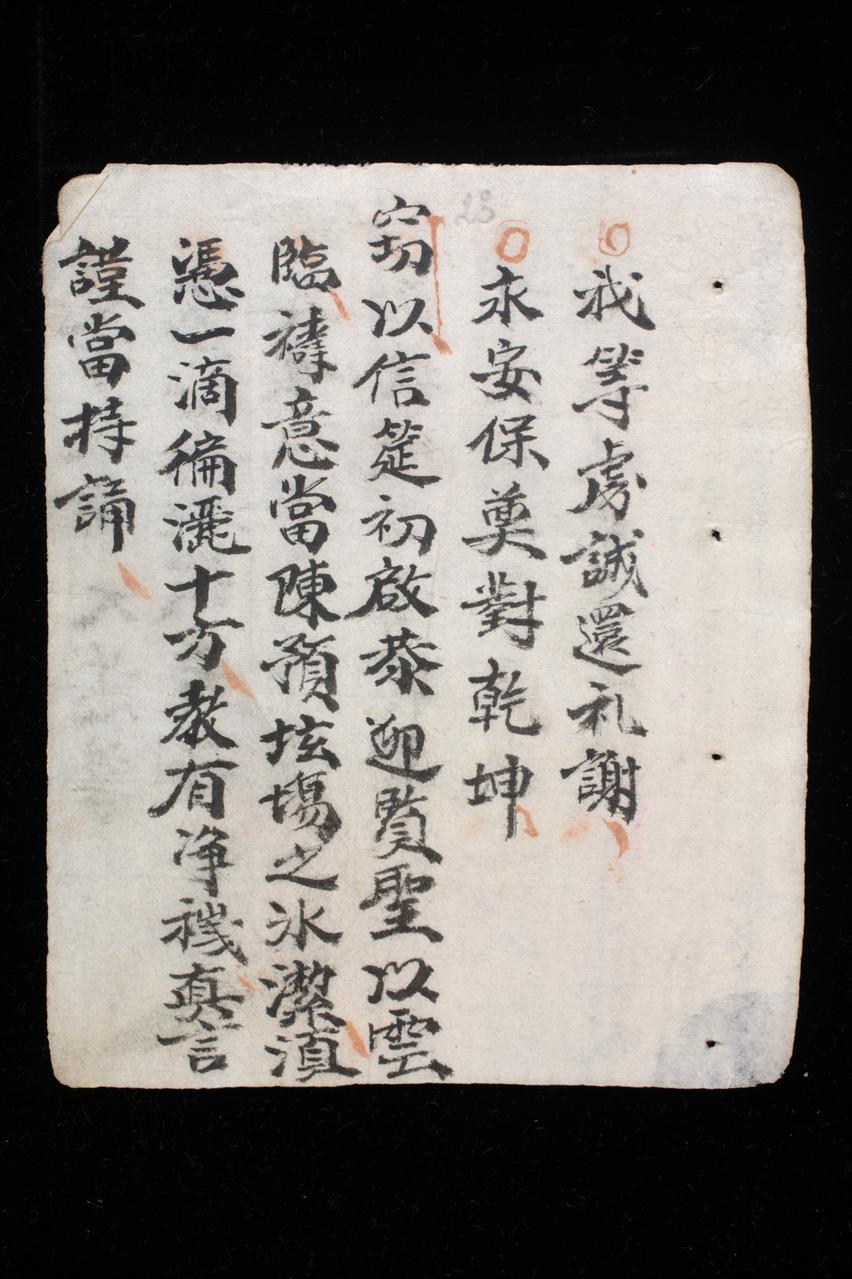 我等虔誠還礼謝
永安保奠對乾坤
窃以信筵初啟恭迎賢聖以雲
臨禱意當陳預垓塲之氷潔湏
憑一滴徧灑十方教有淨穢真言
謹當持誦
23